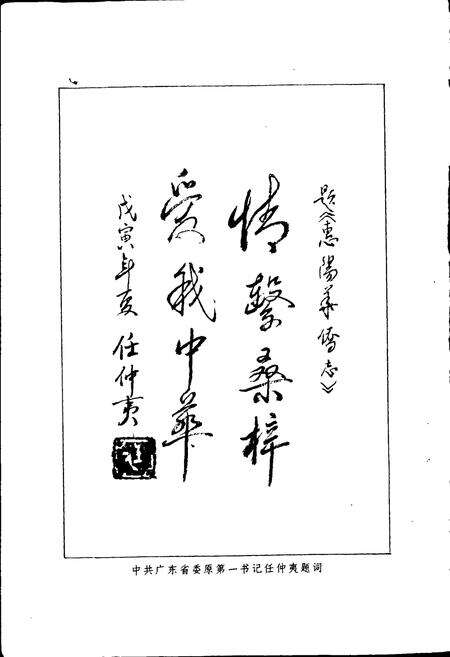 题《惠陽华僑志》
情繫桑梓
爱我中華
戊寅年夏 任仲夷
中共广东省委原第一书记任仲夷题词